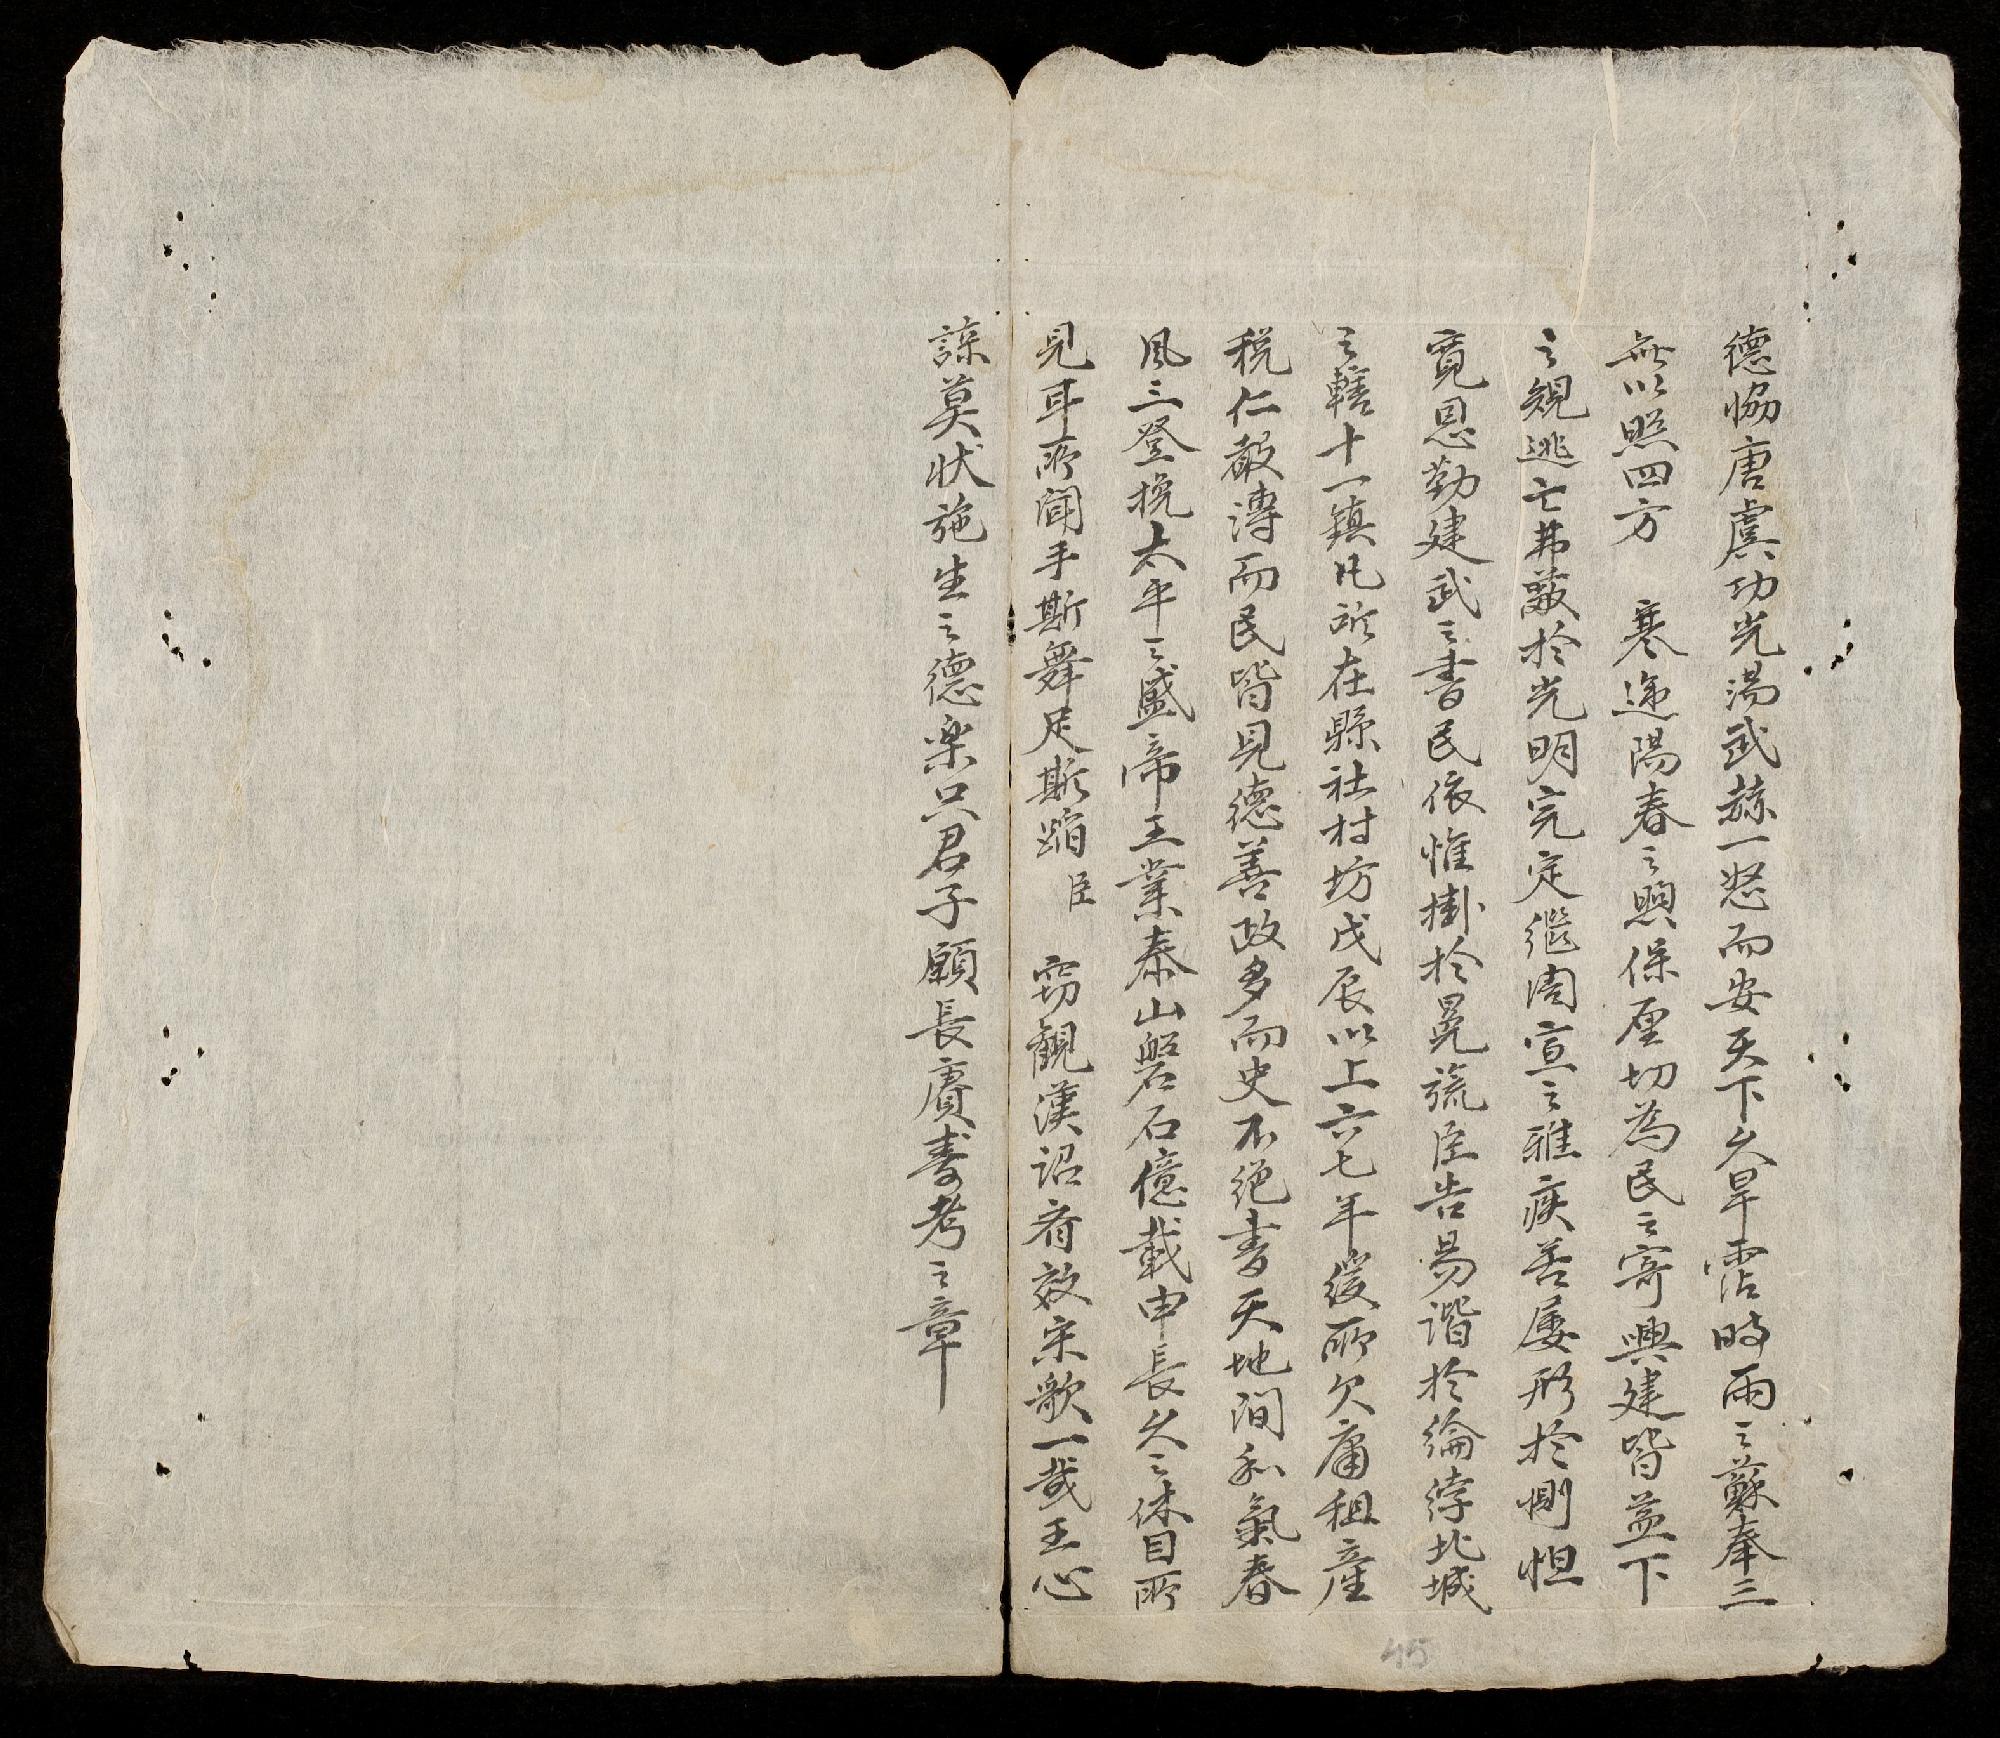 德恊唐虞功光湯武赫一怒而安天下久旱霑時雨之蘇奉三
無以照四方　寒递陽春之煦保厘切為民之寄興建皆益下
之規逃亡弗蔽於光明完定繼周宣之雅疾苦屡形於惻怛
寛恩勤建武之書民依惟掛於冕旒臣告易諧於綸綍北城
之轄十一鎮凡所在縣社村坊戊辰以上六七年後所欠庸租産
税仁敷溥而民皆見德善政多而史不绝書天地間和氣春
風三登挽太平之盛帝王業泰山磐石億載申長久之休目所
見耳所聞手斯舞足斯蹈臣　竊觀漢詔肴效宋歌一哉王心
諒莫状施生之德楽只君子願長賡壽考之章
45